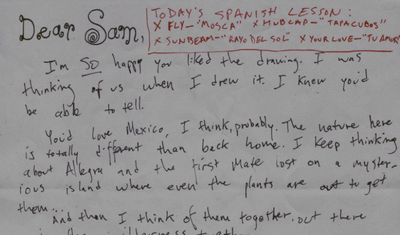 Dear Sam,
TODAY'S SPANISH LESSON:
X FLY - "MOSCA" X HUBCAP - "TAPACUBOS"
X SUNBEAM - "RAYO DEL SOL" X YOUR LOVE - "TU AMOR"
I'm SO happy you liked the drawing. I was
thinking of us when I drew it. I knew you'd
be able to tell.
You'd love Mexico, I think, probably. The nature here
is totally different than back home. I keep thinking
about Allegra and the First Mate lost on a myster-
ious island where even the plants are out to get
them...
And then I think of them together. out there